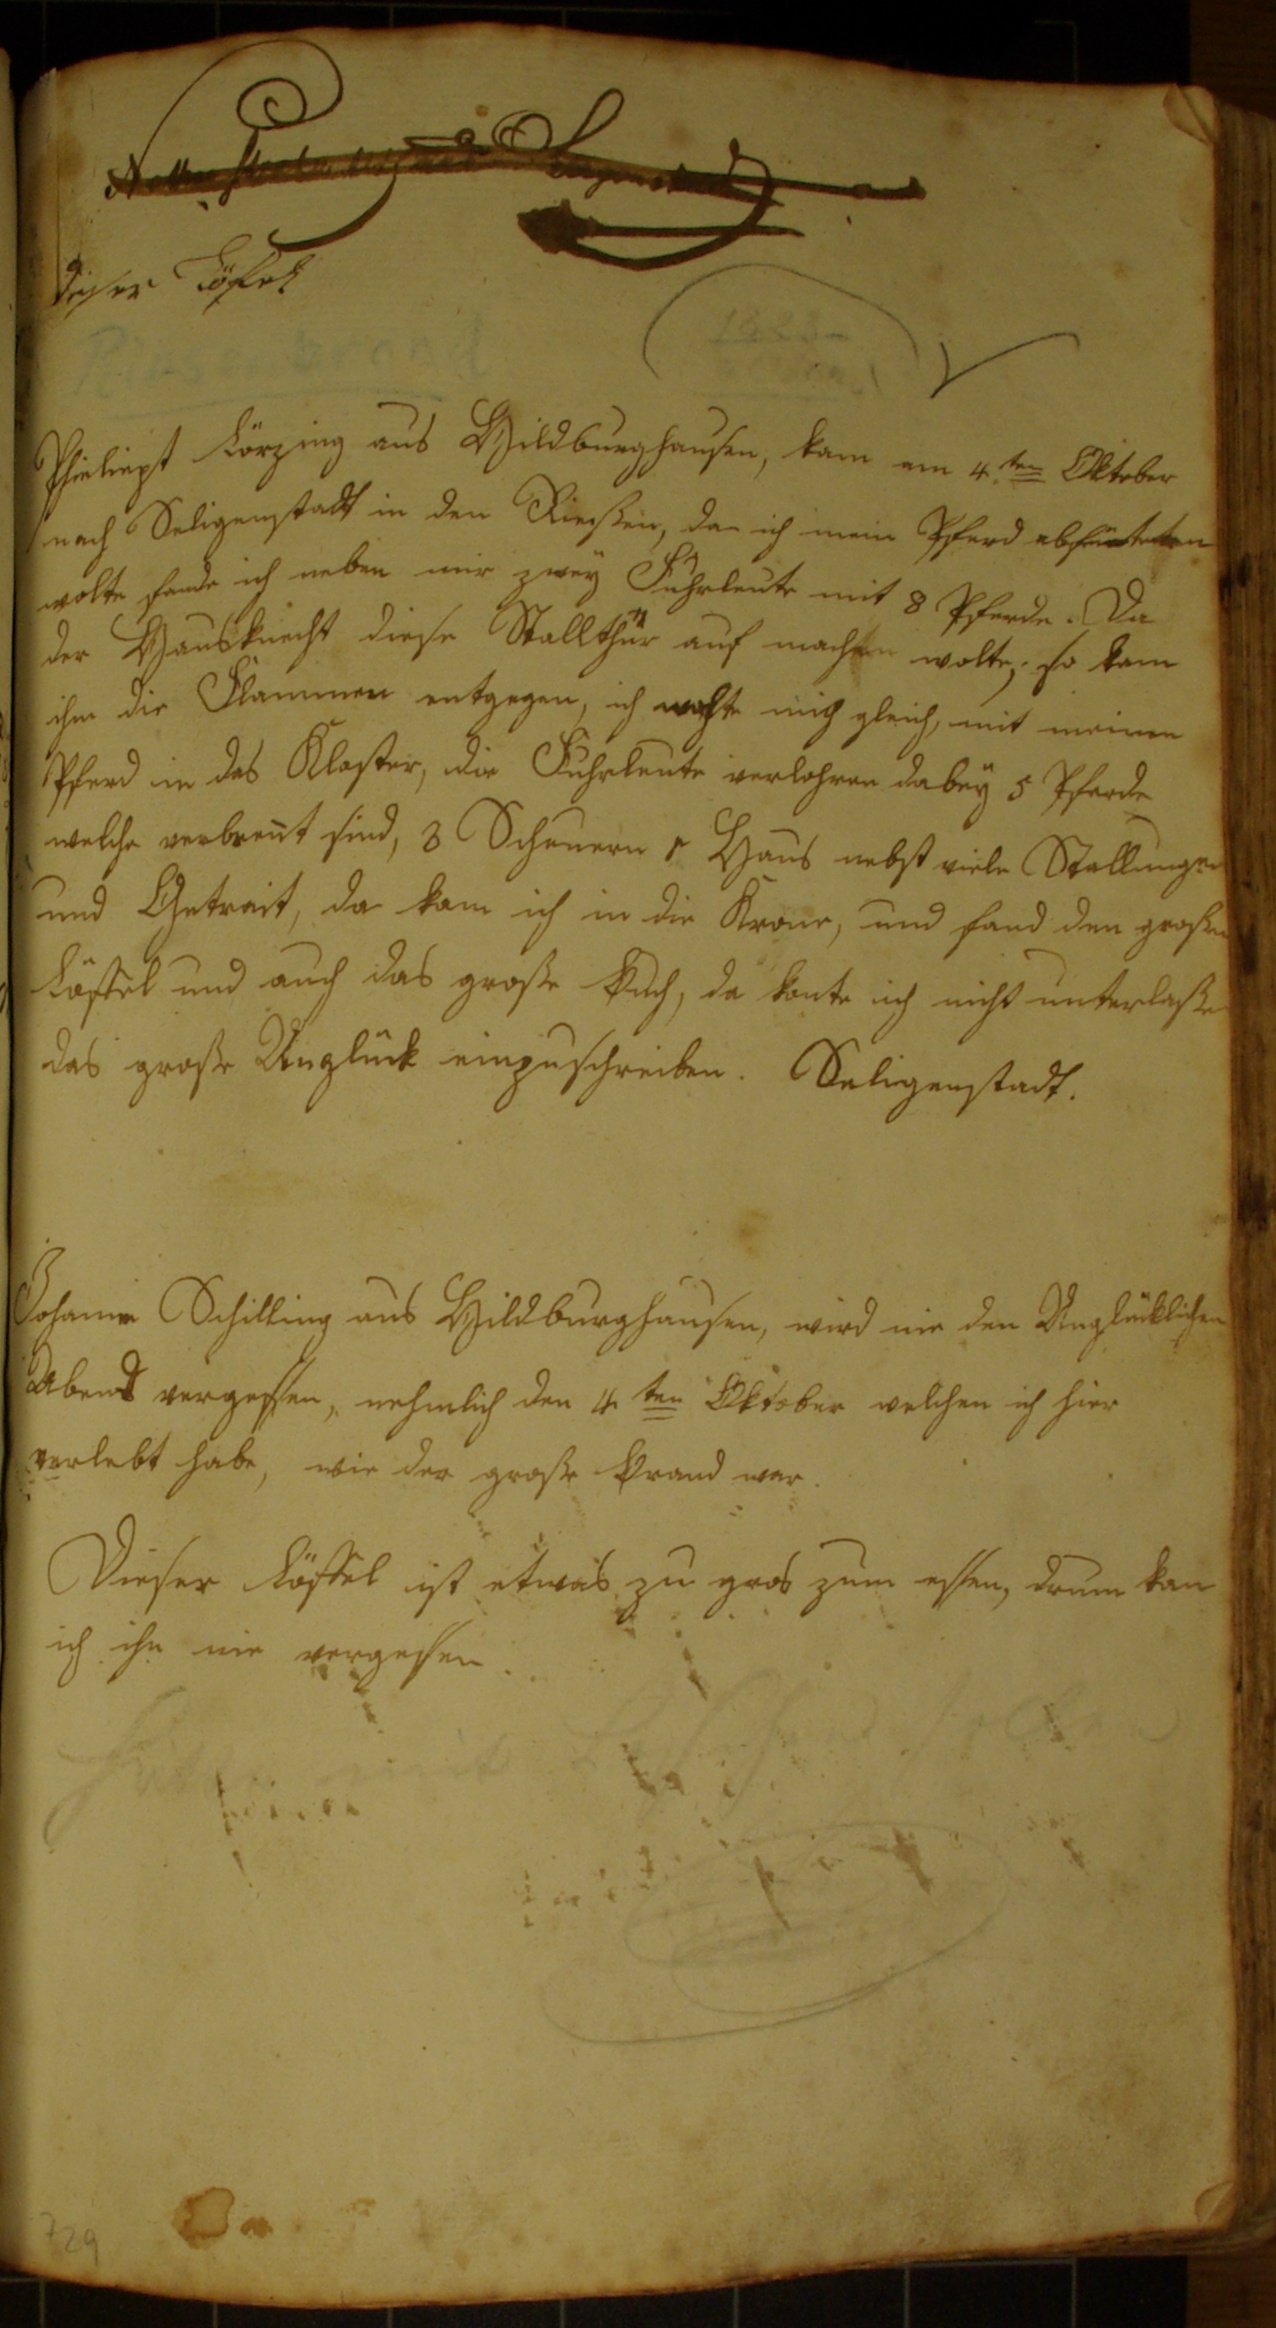 dieser Löfel
Riesenbrand
Phieliept Körzing aus Hildburghausen, kam am 4.ten Oktober
nach Seligenstadt in den Rießen, da ich mein Pferd abfüteten
wolte fande ich neben mir zwey Fuhrleute mit 8 Pferde. Da
der Hausknecht diese Stallthür auf machen wolte, so kam
ihm die Flammen entgegen, ich machte mich gleich, mit meinen
Pferd in das Kloster, die Fuhrleute verlohren dabey 5 Pferde
welche verbrent sind, 3 Scheuern 1 Haus nebst viele Stallungen
und Getrait, da kam ich in die Krone, und fand den großen
Löffel und auch das große Buch, da konte ich nicht unterlaße
das große Unglück einzuschreiben. Seligenstadt.
Johann Schilling aus Hildburghausen, wird nie den Unglücklichen
Abend vergessen, nehmlich den 4ten Oktober welchen ich hier
verlebt habe, wie der große Brand war.
Dieser Löffel ist etwas zu gros zum essen, drum kan
ich ihn nie vergessen.
729